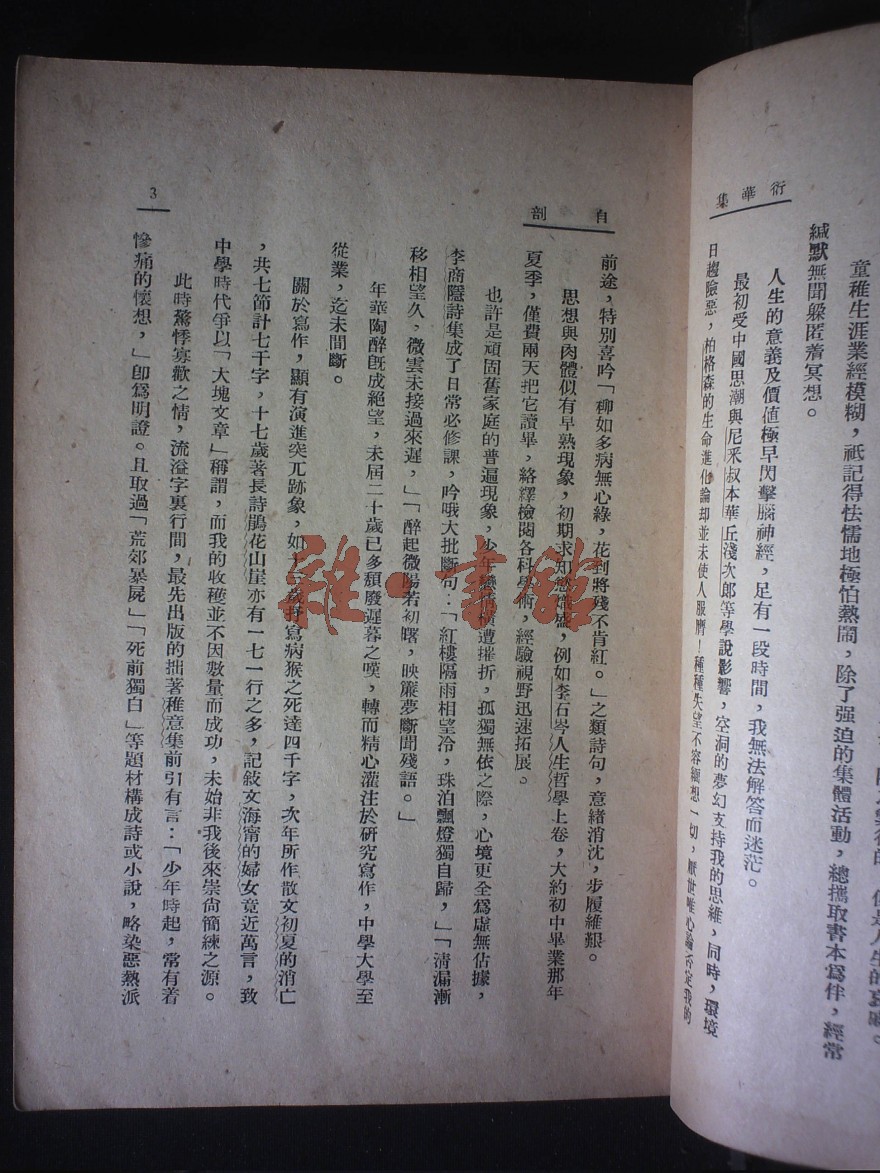 童稚生涯業經模糊，祇記得怯懦地極怕熱鬧，除了强迫的集體活動，總攜取書本爲伴，經常
緘默無聞躲匿着冥想。
人生的意義及價值極早閃擊腦神經，足有一段時間，我無法解答而迷茫。
最初受中國思潮與尼采叔本華丘淺次郎等學說影響，空洞的夢幻支持我的思維，同時，環境
日趨險惡，柏格森的生命進化論却並未使人服膺！種種失望不容細想一切，厭世唯心論否定我的
衍華集
自剖
前途，特別喜吟「柳如多病無心綠，花到將殘不肯紅。」之類詩句，意緒消沈，步履維艱。
思想與肉體似有早熟現象，初期求知慾熾盛，例如李石岑人生哲學上卷，大約初中畢業那年
夏季，僅費兩天把它讀畢，絡繹檢閱各科學術，經驗視野迅速拓展。
也許是頑固舊家庭的普遍現象，少年戀愛橫遭摧折，孤獨無依之際，心境更全爲虛無佔據，
李商隱詩集成了日常必修課，吟哦大批斷句：「紅樓隔雨相望冷，珠泊飄燈獨自歸，」「淸漏漸
移相望久，微雲未接過來遲，」「醉起微陽若初曙，映簾夢斷聞殘語。」
年華陶醉旣成絕望，未屆二十歲已多頹廢遲暮之嘆，轉而精心灌注於研究寫作，中學大學至
從業，迄未間斷。
關於寫作，顯有演進突兀跡象，如十三歲抒寫病猴之死達四千字，次年所作散文初夏的消亡
，共七節計七千字，十七歲著長詩鵑花山崖亦有一七一行之多，記敍文海甯的婦女竟近萬言，致
中學時代爭以「大塊文章」稱謂，而我的收穫並不因數量而成功，未始非我後來崇尙簡練之源。
此時驚悸寡歡之情，流溢字裏行間，最先出版的拙著稚意集前引有言：「少年時起，常有着
慘痛的懷想，」卽爲明證。且取過「荒郊暴屍」「死前獨白」等題材構成詩或小說，略染惡熱派
3
雜·書館